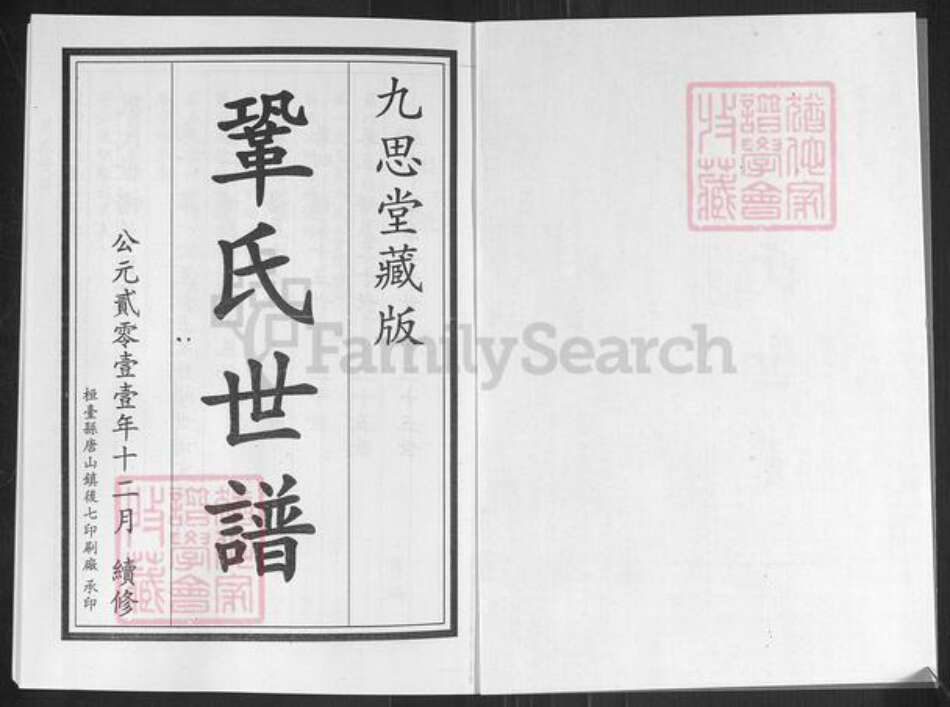 九思堂藏版
鞏氏世譜
公元貳零壹壹年十二月 續修
桓臺縣唐山鎮後七印刷廠 承印
家譜學會收藏
FamilySearch